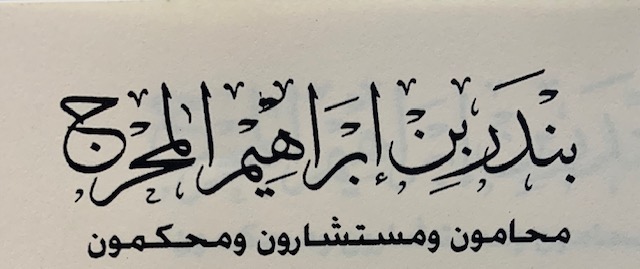 بندر بن إبراهيم المحرج
محامون ومستشارون ومحكمون